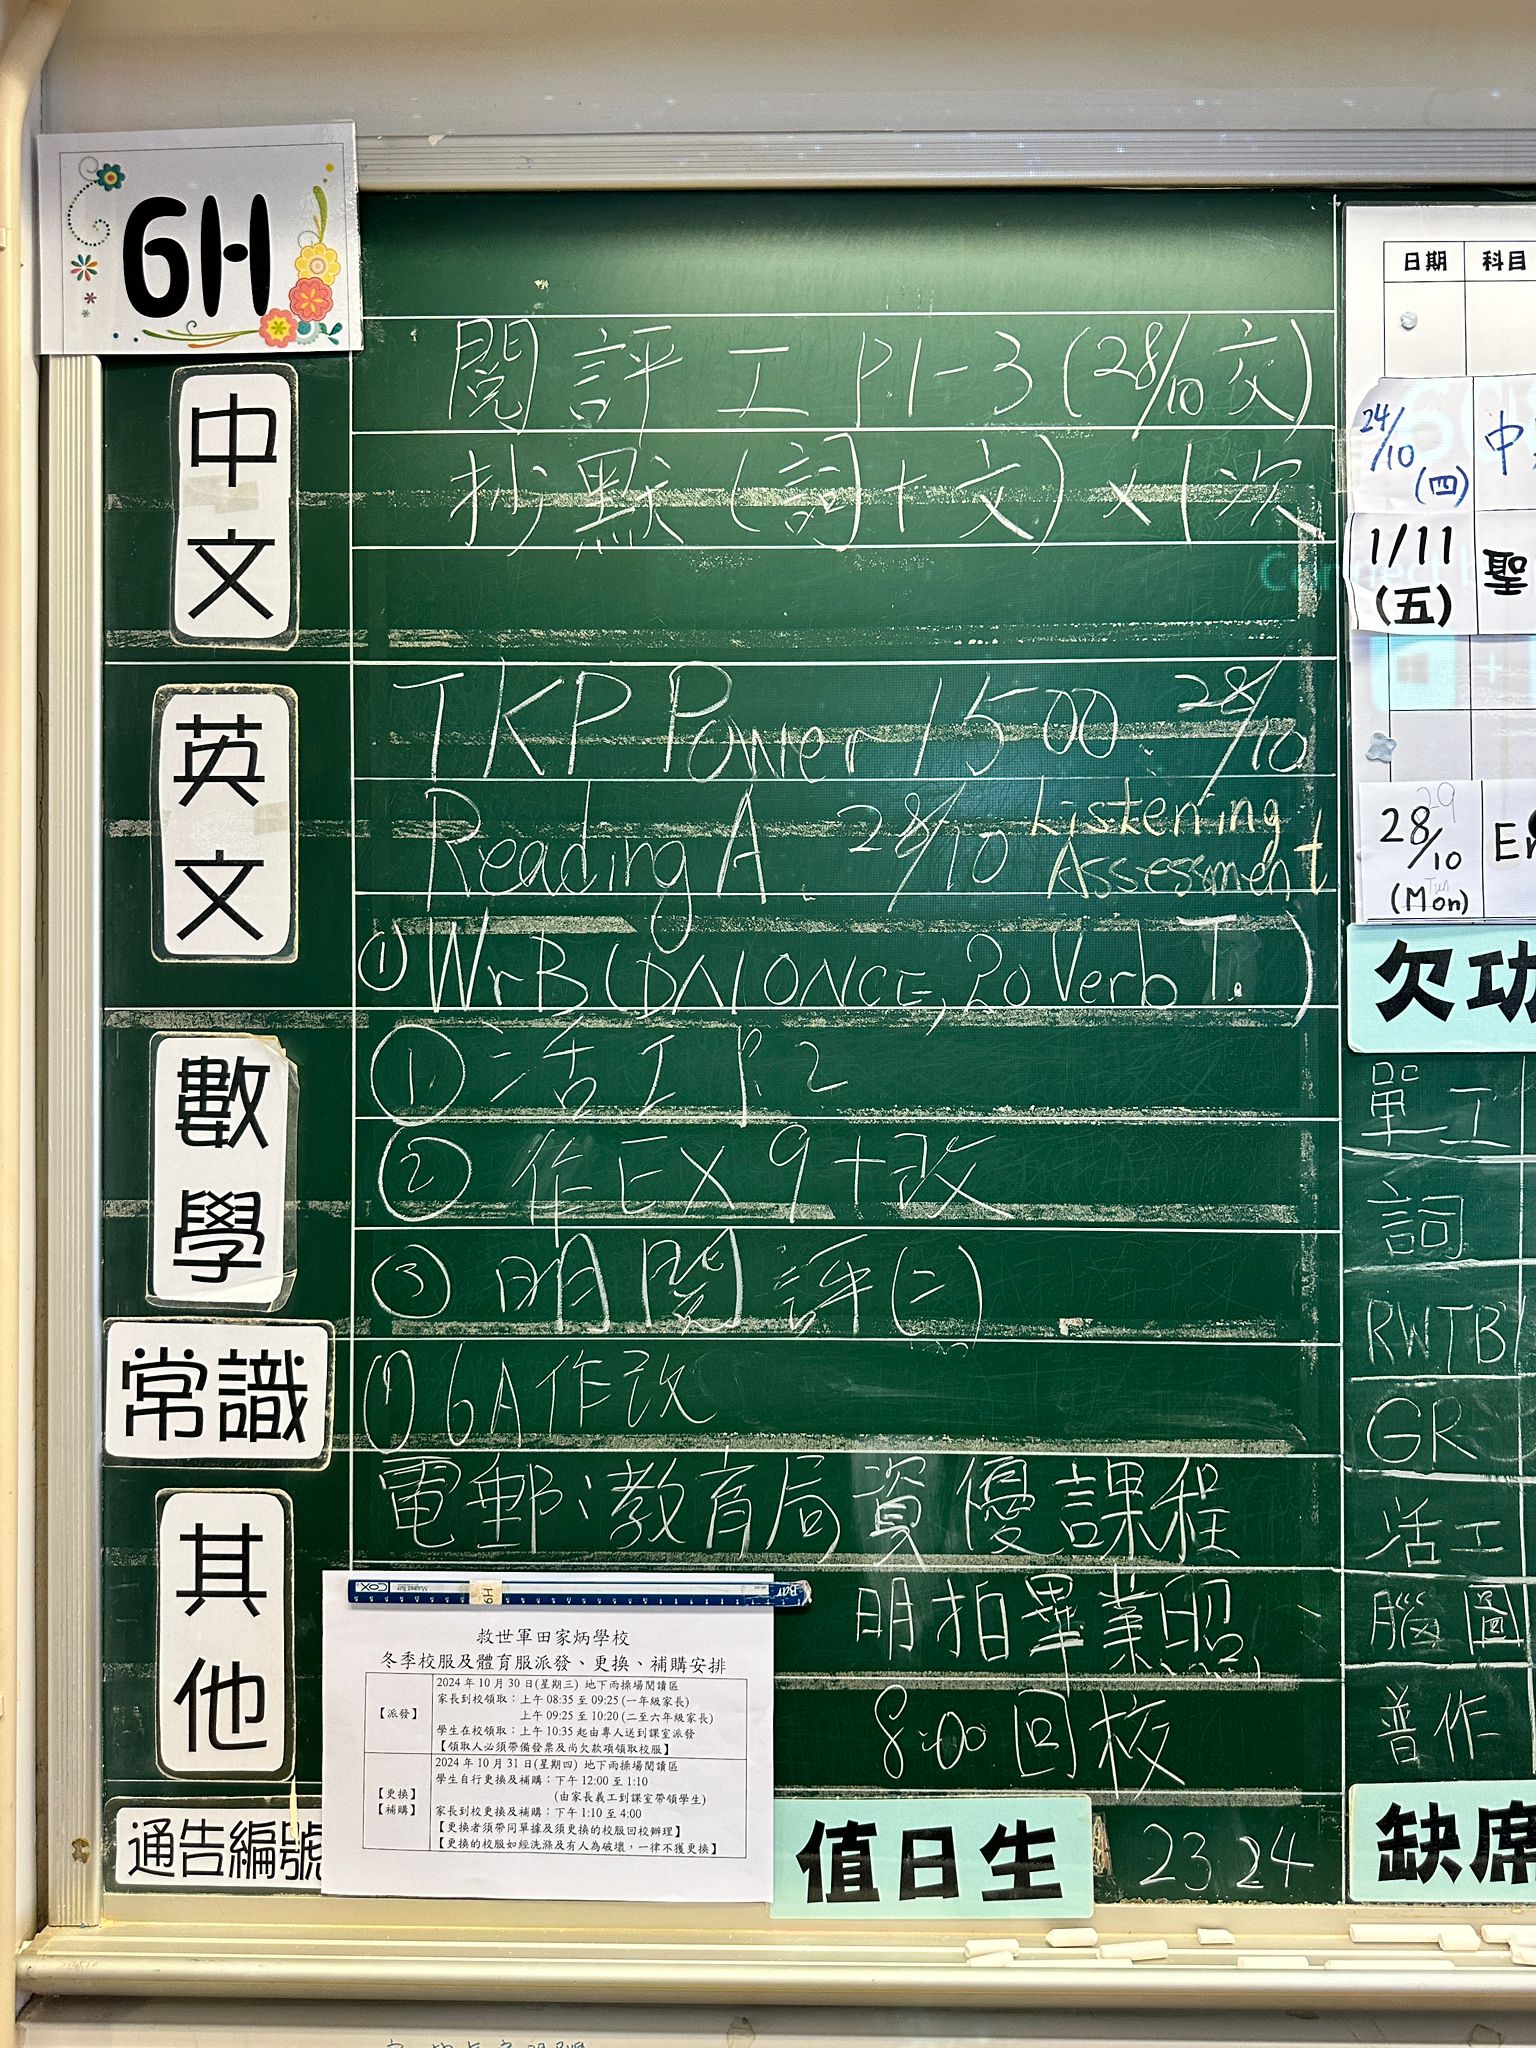 6H
中文
閱評工 P.1-3 (28/10 交)
抄默 (詞+文) ×1次
英文
TKP Power 1500 28/10
Reading A 28/10 Listening Assessment
① WrB ( , 20 Verb T.)
數學
① 活工 P.2
② 作EX 9+改
③ 明閱評(二)
常識
① 6A作改
其他
電郵:教育局資優課程
明拍畢業照
8:00回校
救世軍田家炳學校
冬季校服及體育服派發、更換、補購安排
【派發】
2024 年 10 月 30 日(星期三) 地下雨操場閱讀區
家長到校領取:上午 08:35 至 09:25 (一年級家長)
上午 09:25 至 10:20 (二至六年級家長)
學生在校領取:上午 10:35 起由專人送到課室派發
【領取人必須帶備發票及尚欠款項領取校服】
【更換】
【補購】
2024 年 10 月 31 日(星期四) 地下雨操場閱讀區
學生自行更換及補購:下午 12:00 至 1:10
(由家長義工到課室帶領學生)
家長到校更換及補購:下午 1:10 至 4:00
【更換者須帶同單據及須更換的校服回校辦理】
【更換的校服如經洗滌及有人為破壞,一律不獲更換】
通告編號
值日生
23 24
日期 科目
24/10 (四) 中
1/11 (五) 聖
28/10 (Mon)
欠功
單工
詞
RWTB
GR
活工
腦圖
普作
缺席